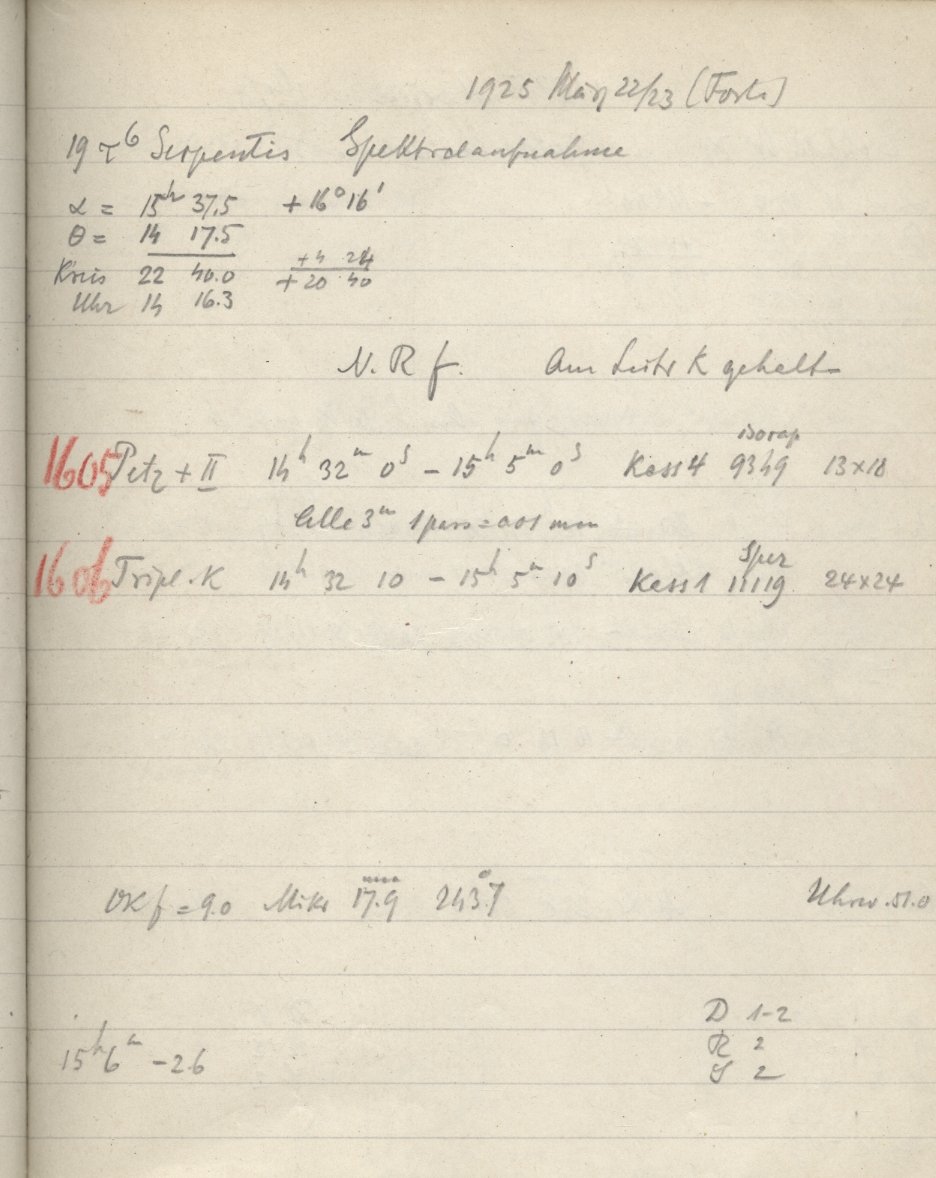 1925 März 22/23 (Forts.)
19 τ⁶ Serpentis Spektralaufnahme
α = 15ʰ 37.5 +16° 16'
θ = 14 17.5
+4 24
Kreis 22 40.0 +20 40
Uhr 14 16.3
N. R f. Am Leitr K gehalt.
isorap
1605 Petz + II 14ʰ 32ᵐ 0ˢ – 15ʰ 5ᵐ 0ˢ Kass 4 9349 13×18
Alle 3ᵐ 1 pars = 0.01 mm
Sper
1606 Tripl. K 14ʰ 32 10 – 15ʰ 5ᵐ 10ˢ Kass 1 11119 24×24
OK f = 9.0 Mikr 17.9 243.7 Uhrw. 51.0
D 1-2
R 2
15ʰ 6ᵐ –2.6
S 2